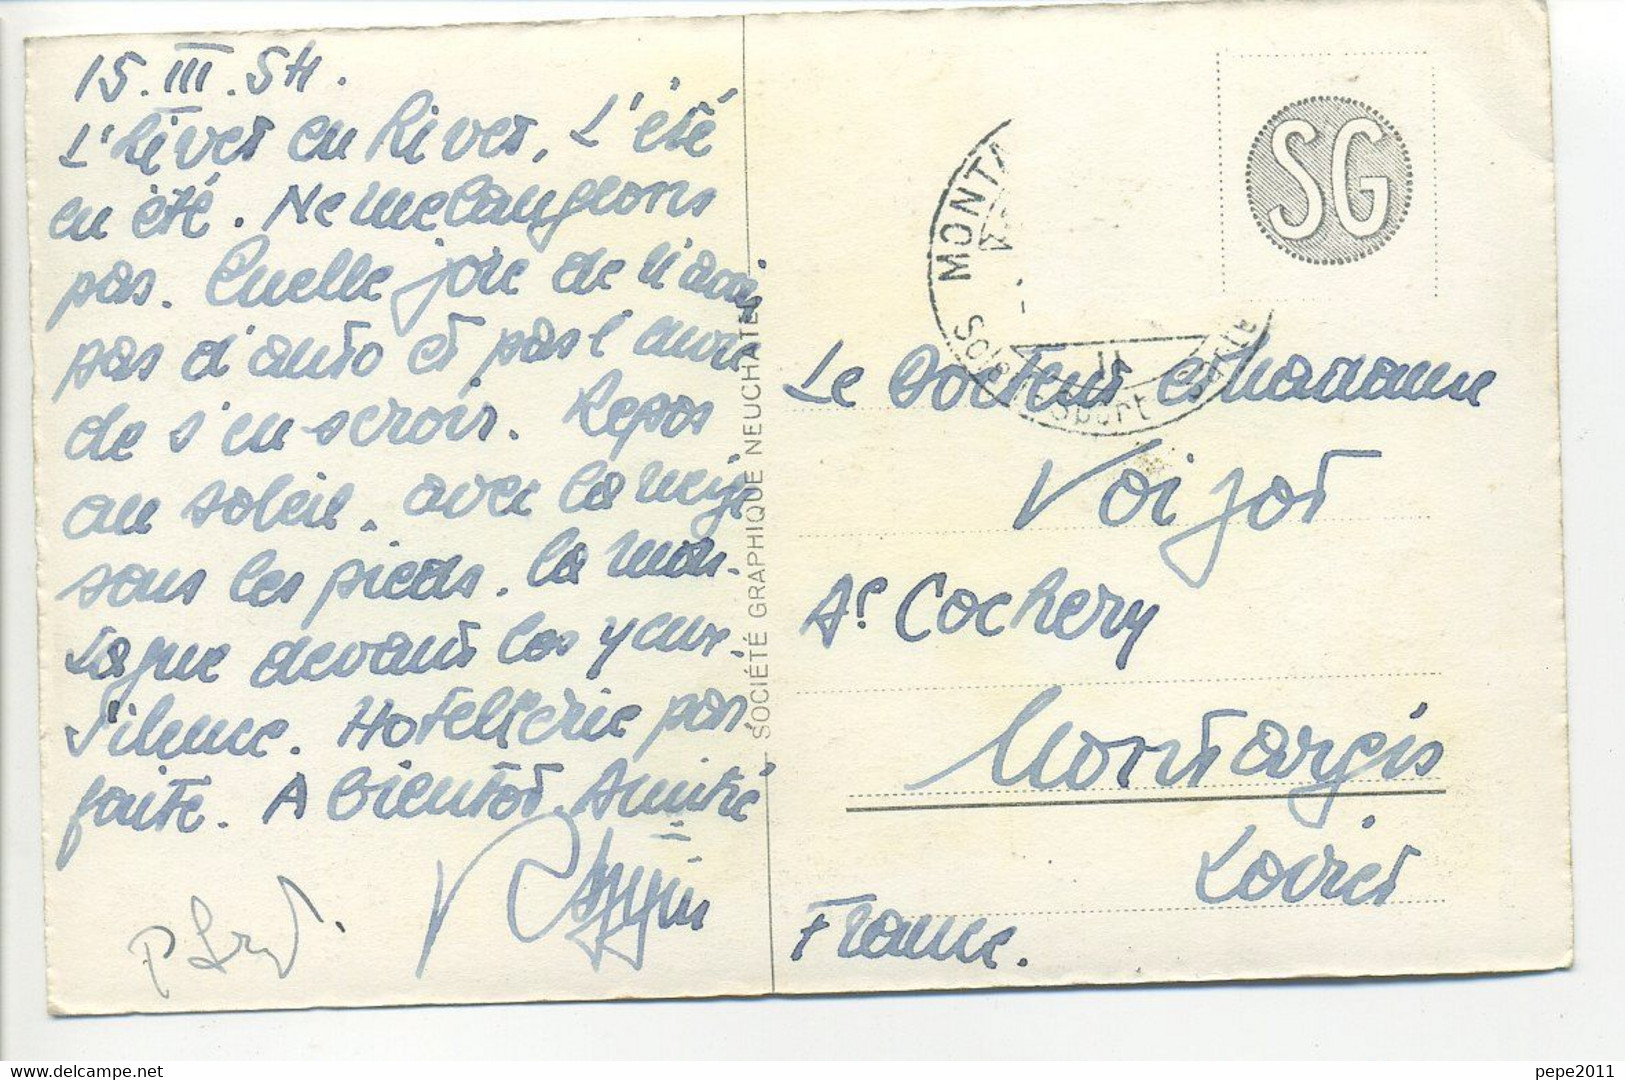 15.III.54.
L'hiver en hiver. L'été
en été. Ne melangeons
pas. Quelle joie de n'avoir
pas d'auto et pas l'envie
de s'en servir. Repos
au soleil. avec la neige
sous les pieds. la mon-
tagne devant les yeux.
Silence. Hotellerie par-
faite. A bientot. Amitié
SOCIÉTÉ GRAPHIQUE NEUCHATEL
SG
MONTA
Soleil - Sport
Le Docteur et Madame
Voijot
Ac Cochery
Montargis
Loiret
France.
pepe2011